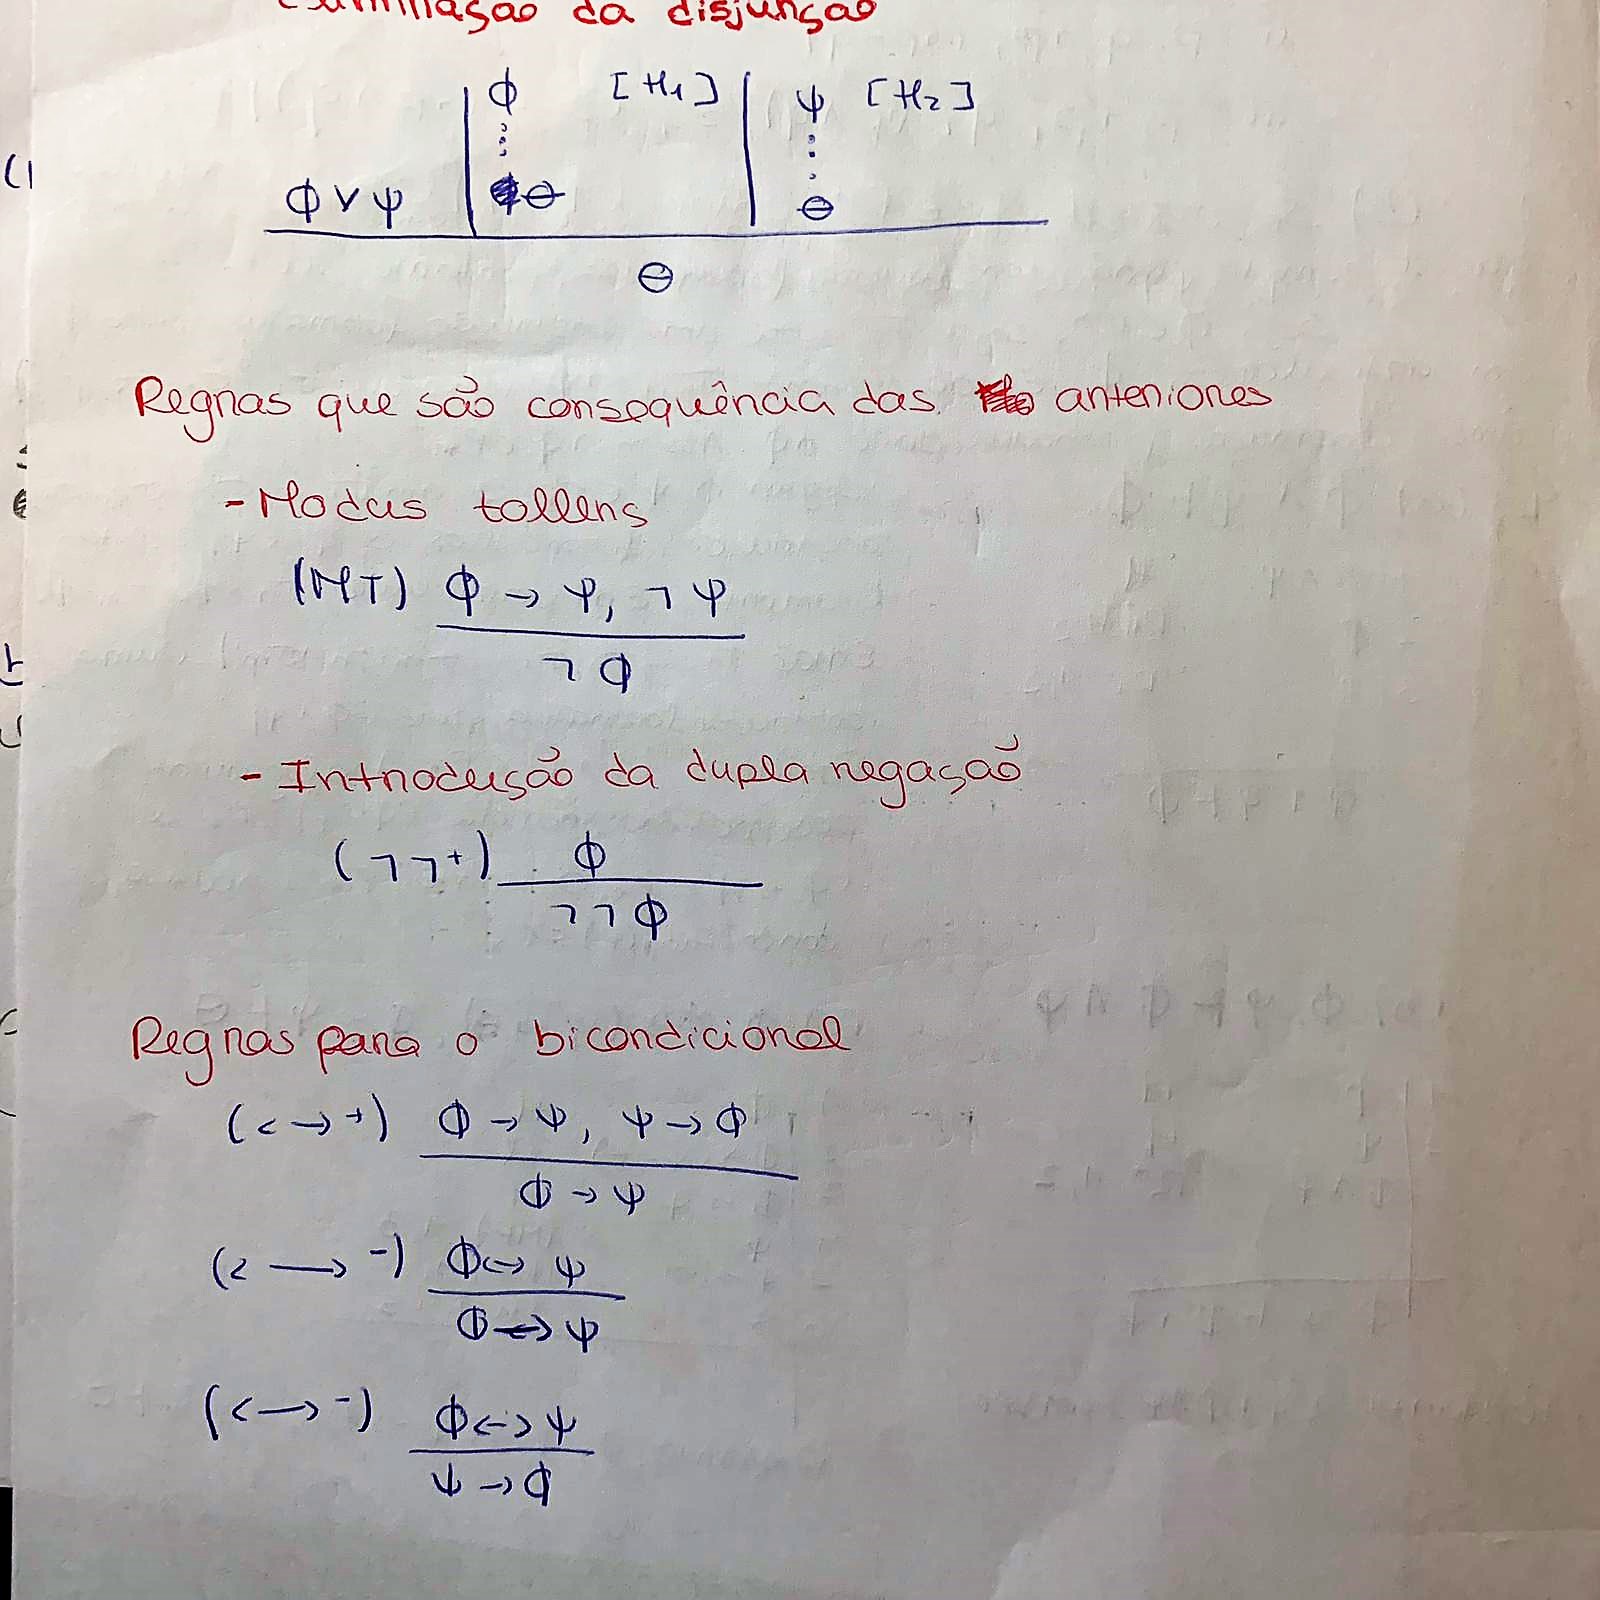 Eliminação da disjunção
ϕ [H1] ψ [H2]
⋮ ⋮
ϕ ∨ ψ θ θ
θ
Regras que são consequência das anteriores
- Modus tollens
(MT) ϕ → ψ, ¬ψ
¬ϕ
- Introdução da dupla negação
(¬¬+) ϕ
¬¬ϕ
Regras para o bicondicional
(<→+) ϕ → ψ, ψ → ϕ
ϕ → ψ
(<→-) ϕ <-> ψ
ϕ <-> ψ
(<→-) ϕ <-> ψ
ψ → ϕ